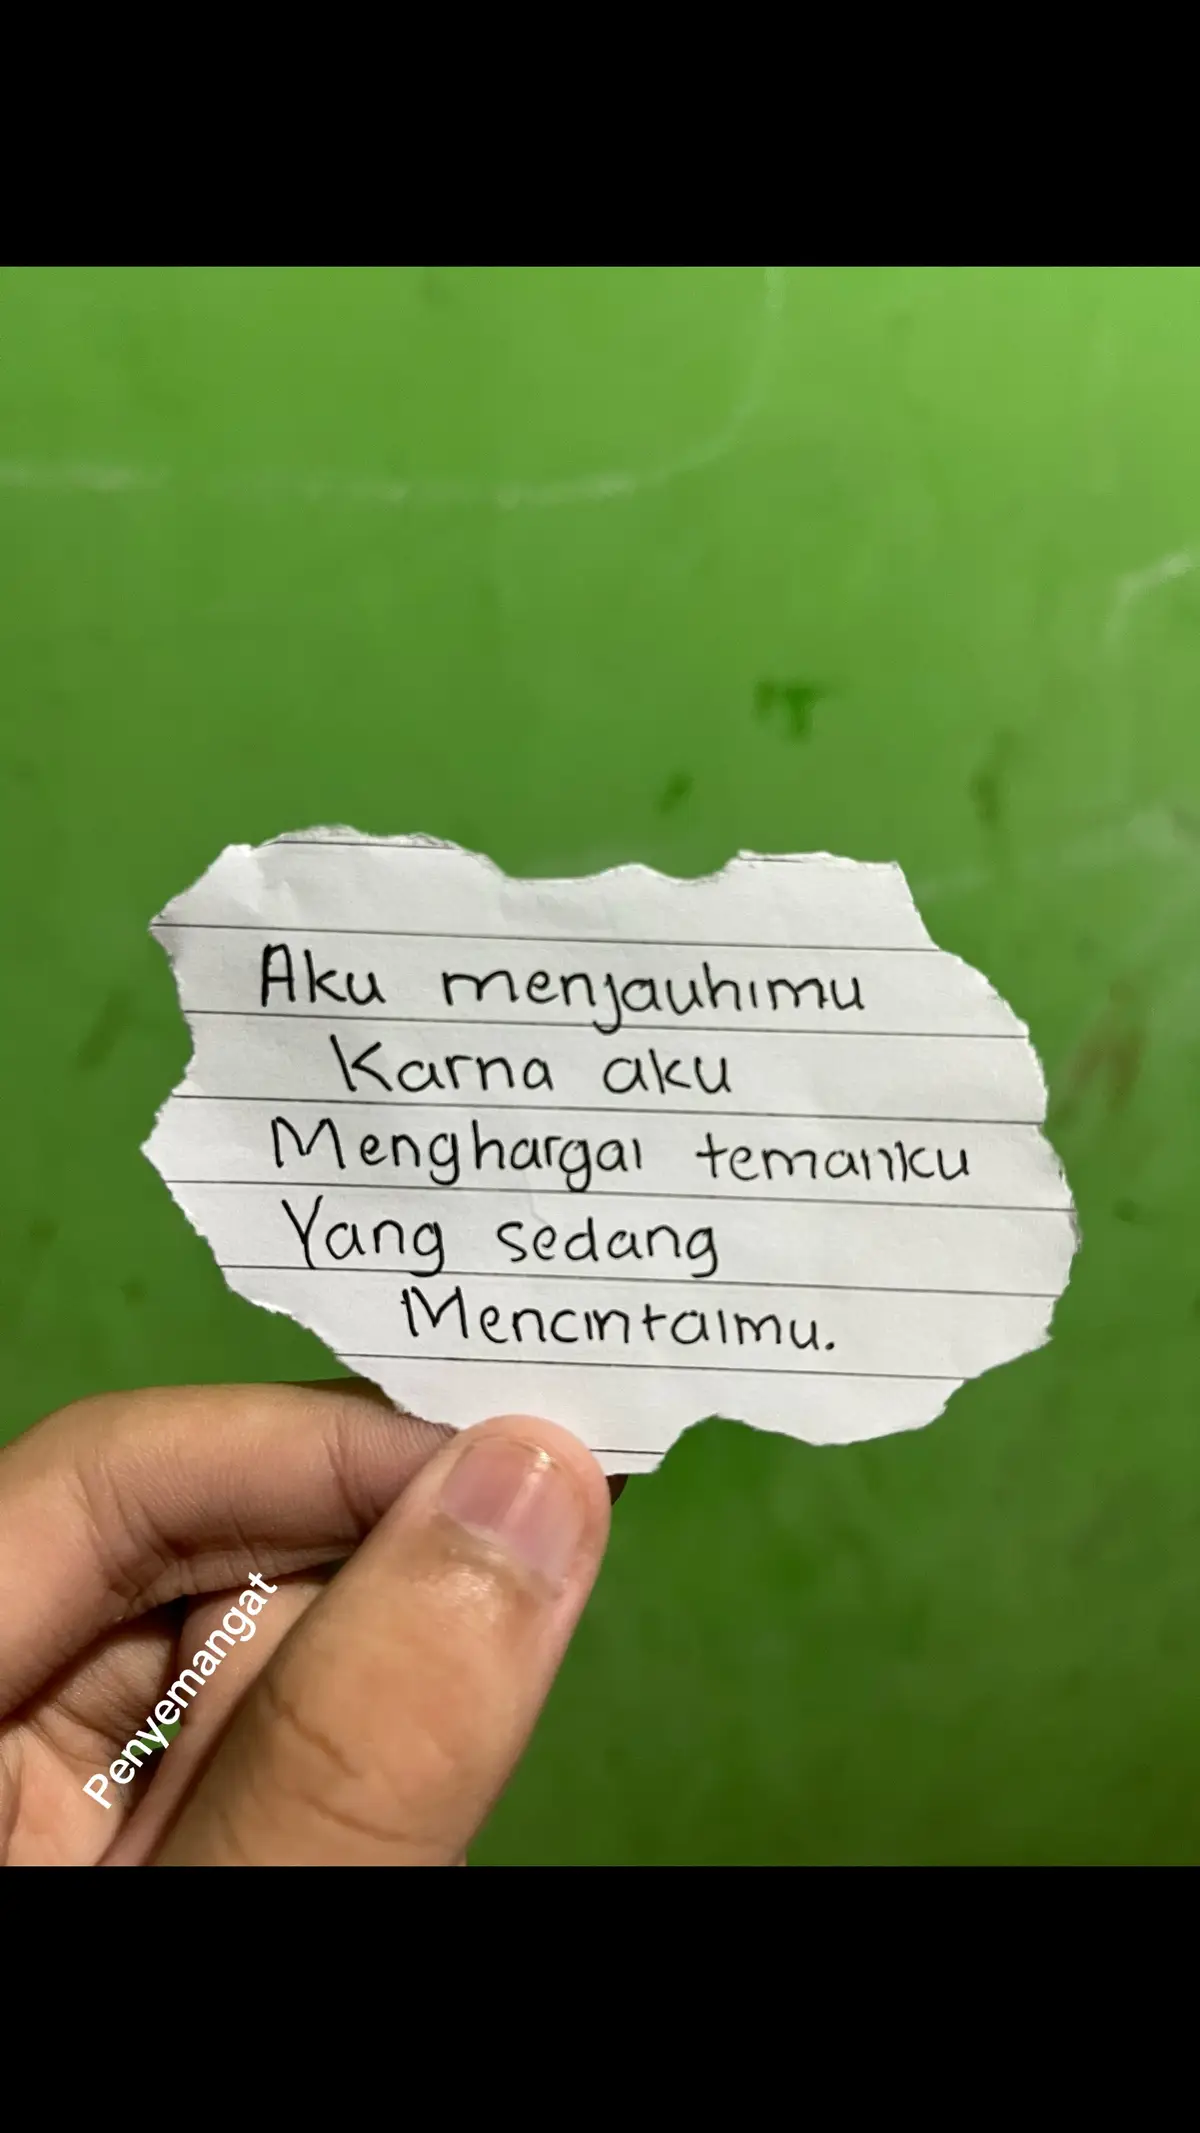 Aku menjauhimu
Karna aku
Menghargai temanku
Yang sedang
Mencintaimu.
Penyemangat